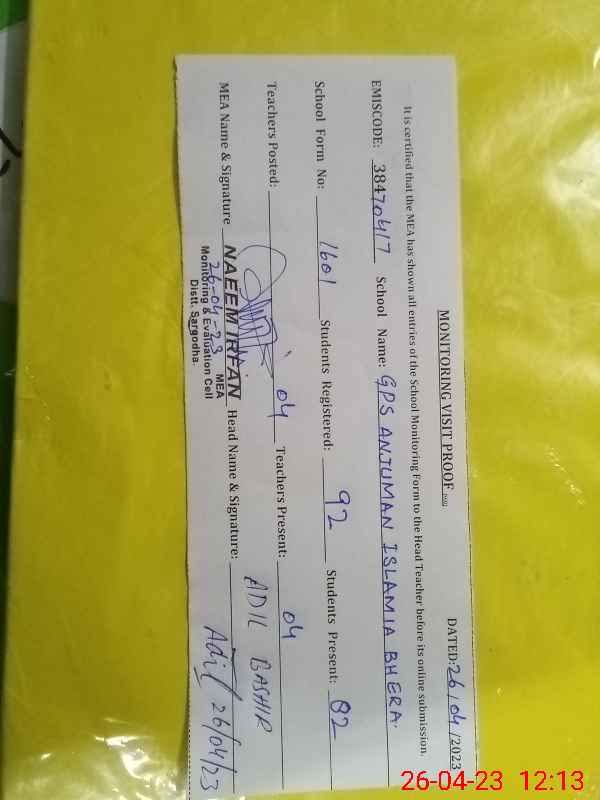 MONITORING VISIT PROOF
DATED: 26/04/2023
It is certified that the MEA has shown all entries of the School Monitoring Form to the Head Teacher before its online submission.
EMISCODE: 38470417 School Name: GPS ANJUMAN ISLAMIA BHERA.
School Form No: 1601 Students Registered: 92 Students Present: 82
Teachers Posted: 04 Teachers Present: 04
MEA Name & Signature NAEEM IRFAN Head Name & Signature: ADIL BASHIR
MEA
Monitoring & Evaluation Cell
Distt. Sargodha.
26-04-23
Adil 26/04/23
26-04-23 12:13